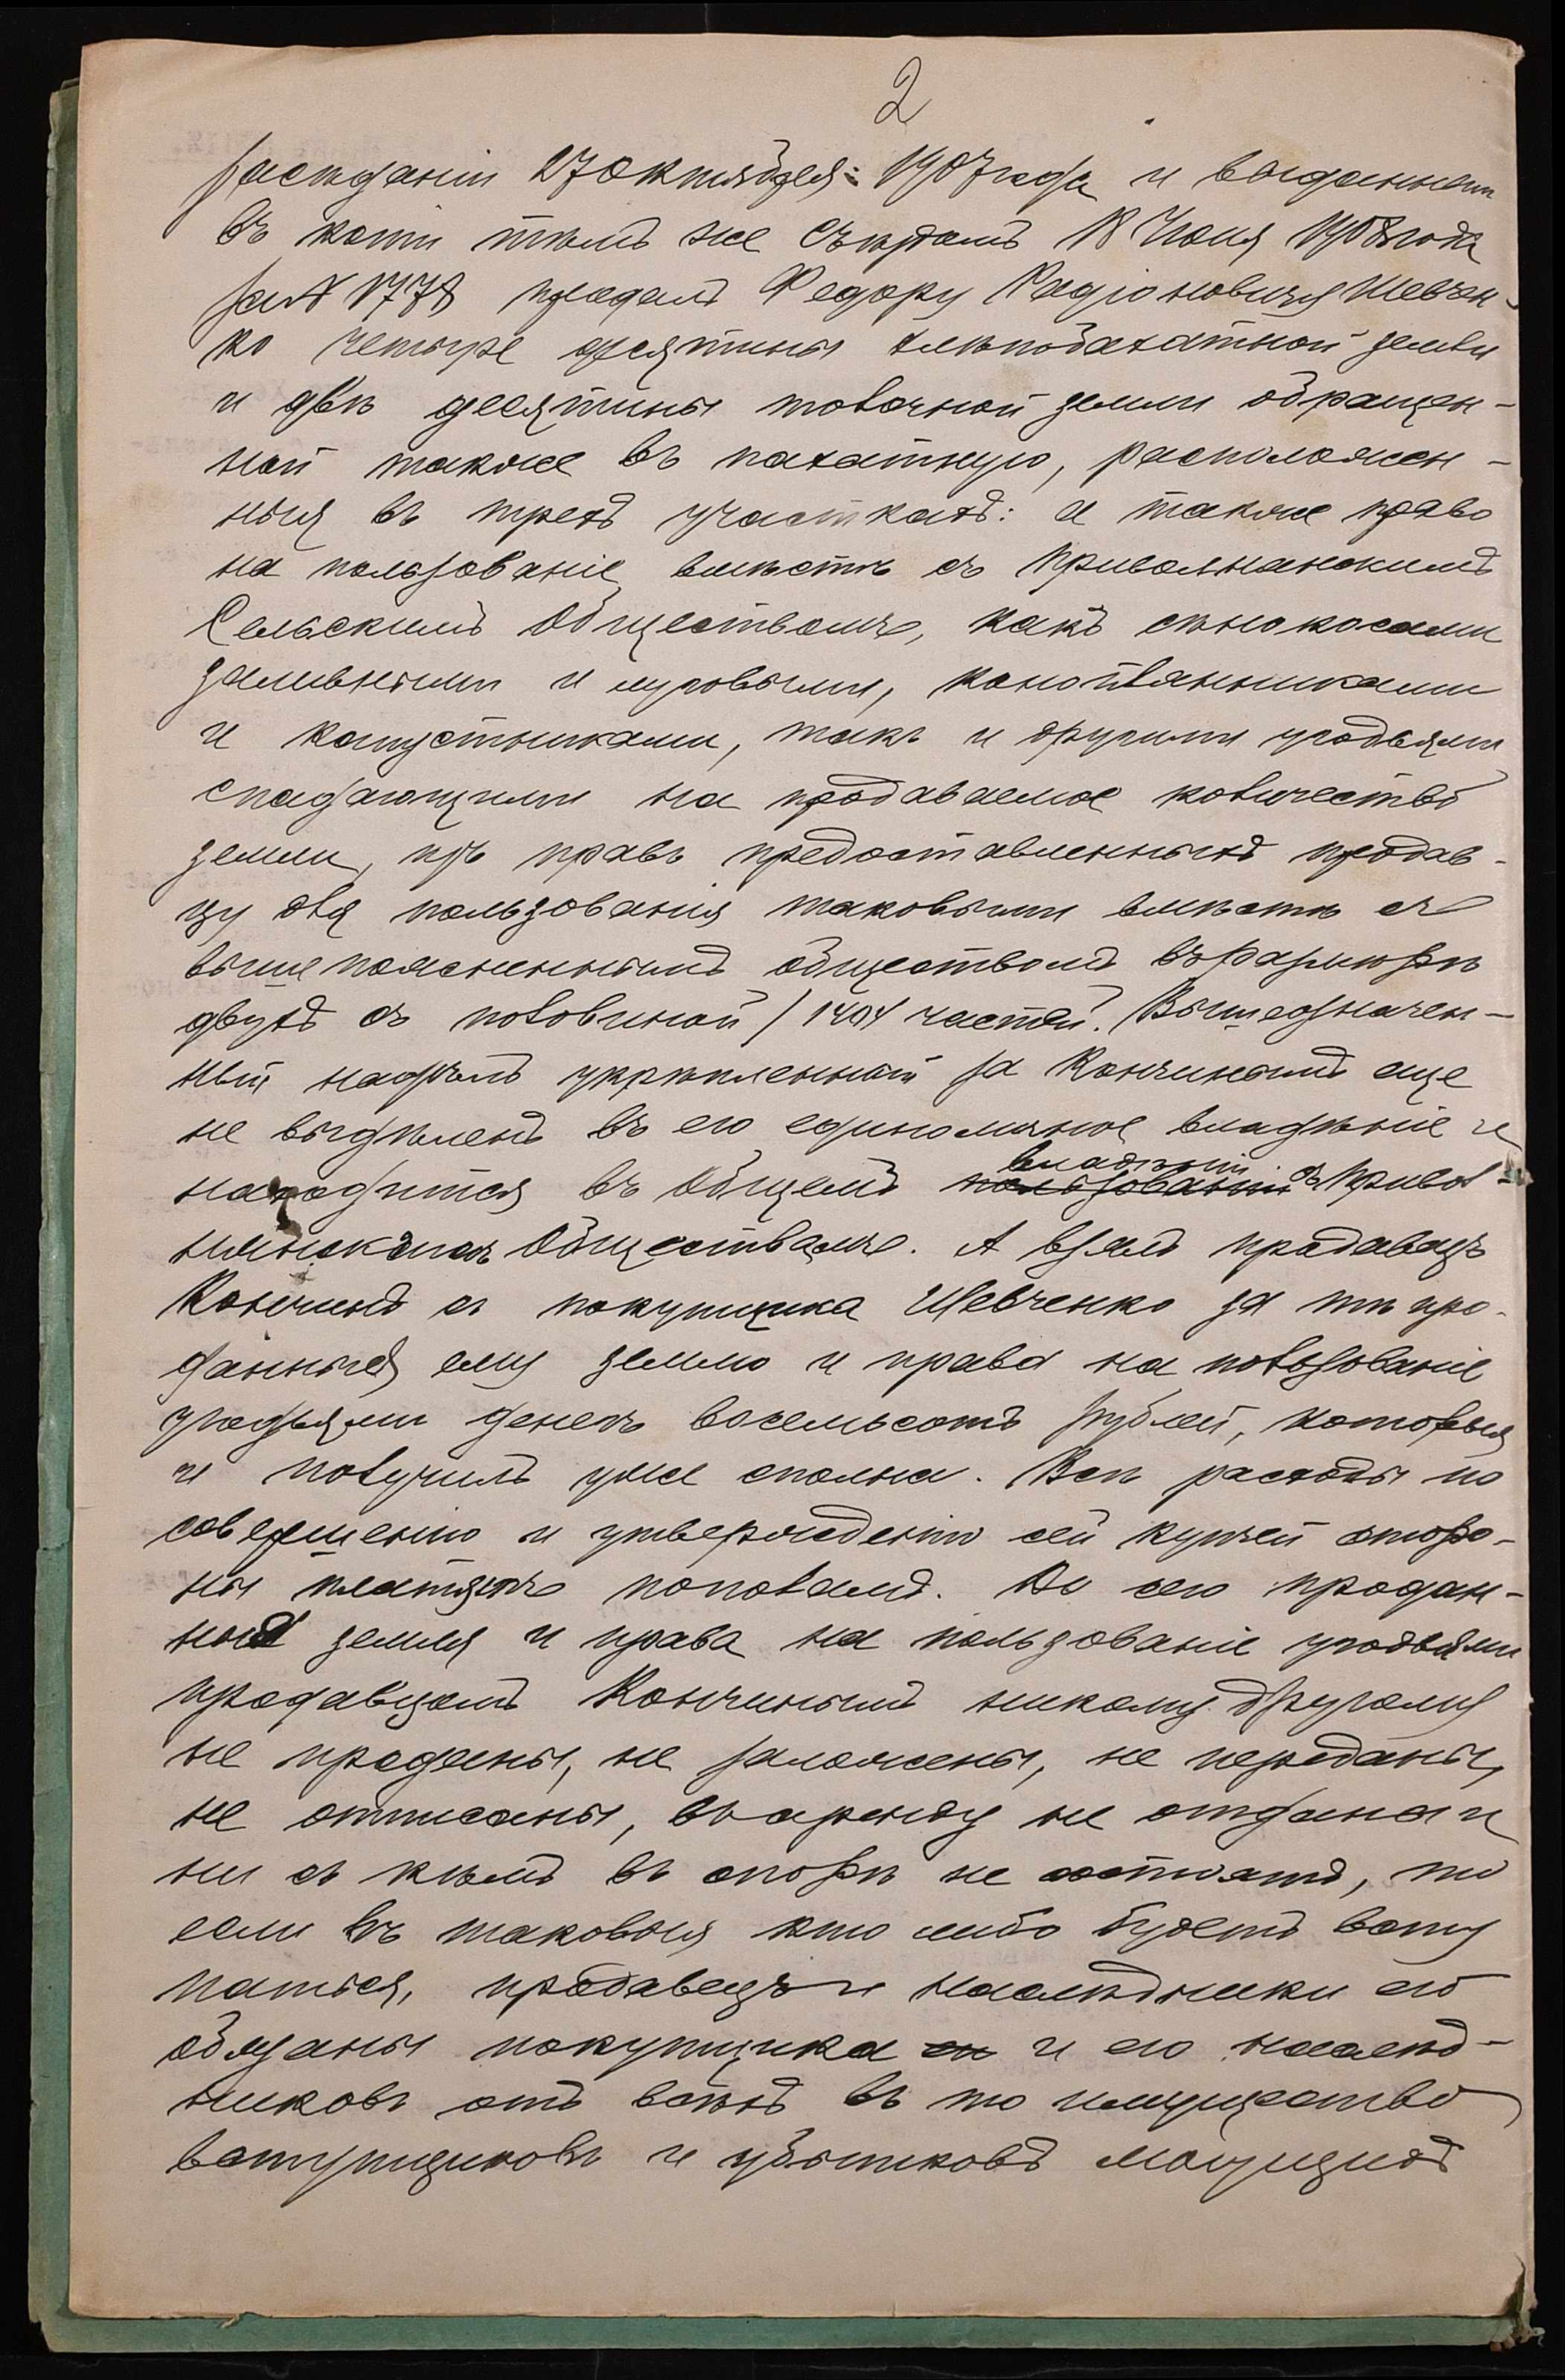 2
засѣданіи 27 Октября 1907 года и выданнаго
въ копіи тѣмъ же Съѣздомъ 18 Іюня 1908 года
за № 1778 продалъ Федору Родіоновичу Шевчен-
ко четыре десятины хлѣбопахатной земли
и двѣ десятины толочной земли обращен-
ной также въ пахатную, расположен-
ныя въ трехъ участкахъ: а также право
на пользованіе вмѣстѣ съ Привольнянскимъ
Сельскимъ Обществомъ, какъ сѣнокосами
заливными и луговыми, коноплянниками
и капустниками, такъ и другими угодьями
спадающими на продаваемое количество
земли, изъ правъ предоставленныхъ продав-
цу для пользованія таковыми вмѣстѣ съ
вышепоясненнымъ обществомъ въ размѣрѣ
двухъ съ половиной / 1404 частей. Вышеозначен-
ный надѣлъ укрѣпленный за Кончинымъ еще
не выдѣленъ въ его единоличное владѣніе и
владѣніи
находится въ Общемъ пользованіи съ Приволь-
нянскимъ Обществомъ. А взялъ продавецъ
Кончинъ съ покупщика Шевченко за тѣ про-
данныя ему землю и права на пользованіе
угодьями денегъ восемьсотъ рублей, которыя
и получилъ уже сполна. Всѣ расходы по
совершенію и утвержденію сей купчей сторо-
ны платятъ пополамъ. До сего продан-
ныя земля и права на пользованіе угодьями
продавцомъ Кончинымъ никому другому
не проданы, не заложены, не переданы,
не отписаны, въ аренду не отданы и
ни съ кѣмъ въ спорѣ не состоятъ, то
если въ таковыя кто либо будетъ всту
паться, продавецъ и наслѣдники его
обязаны покупщика и его наслѣд-
никовъ отъ всѣхъ въ то имущество
вступщиковъ и убытковъ могущихъ